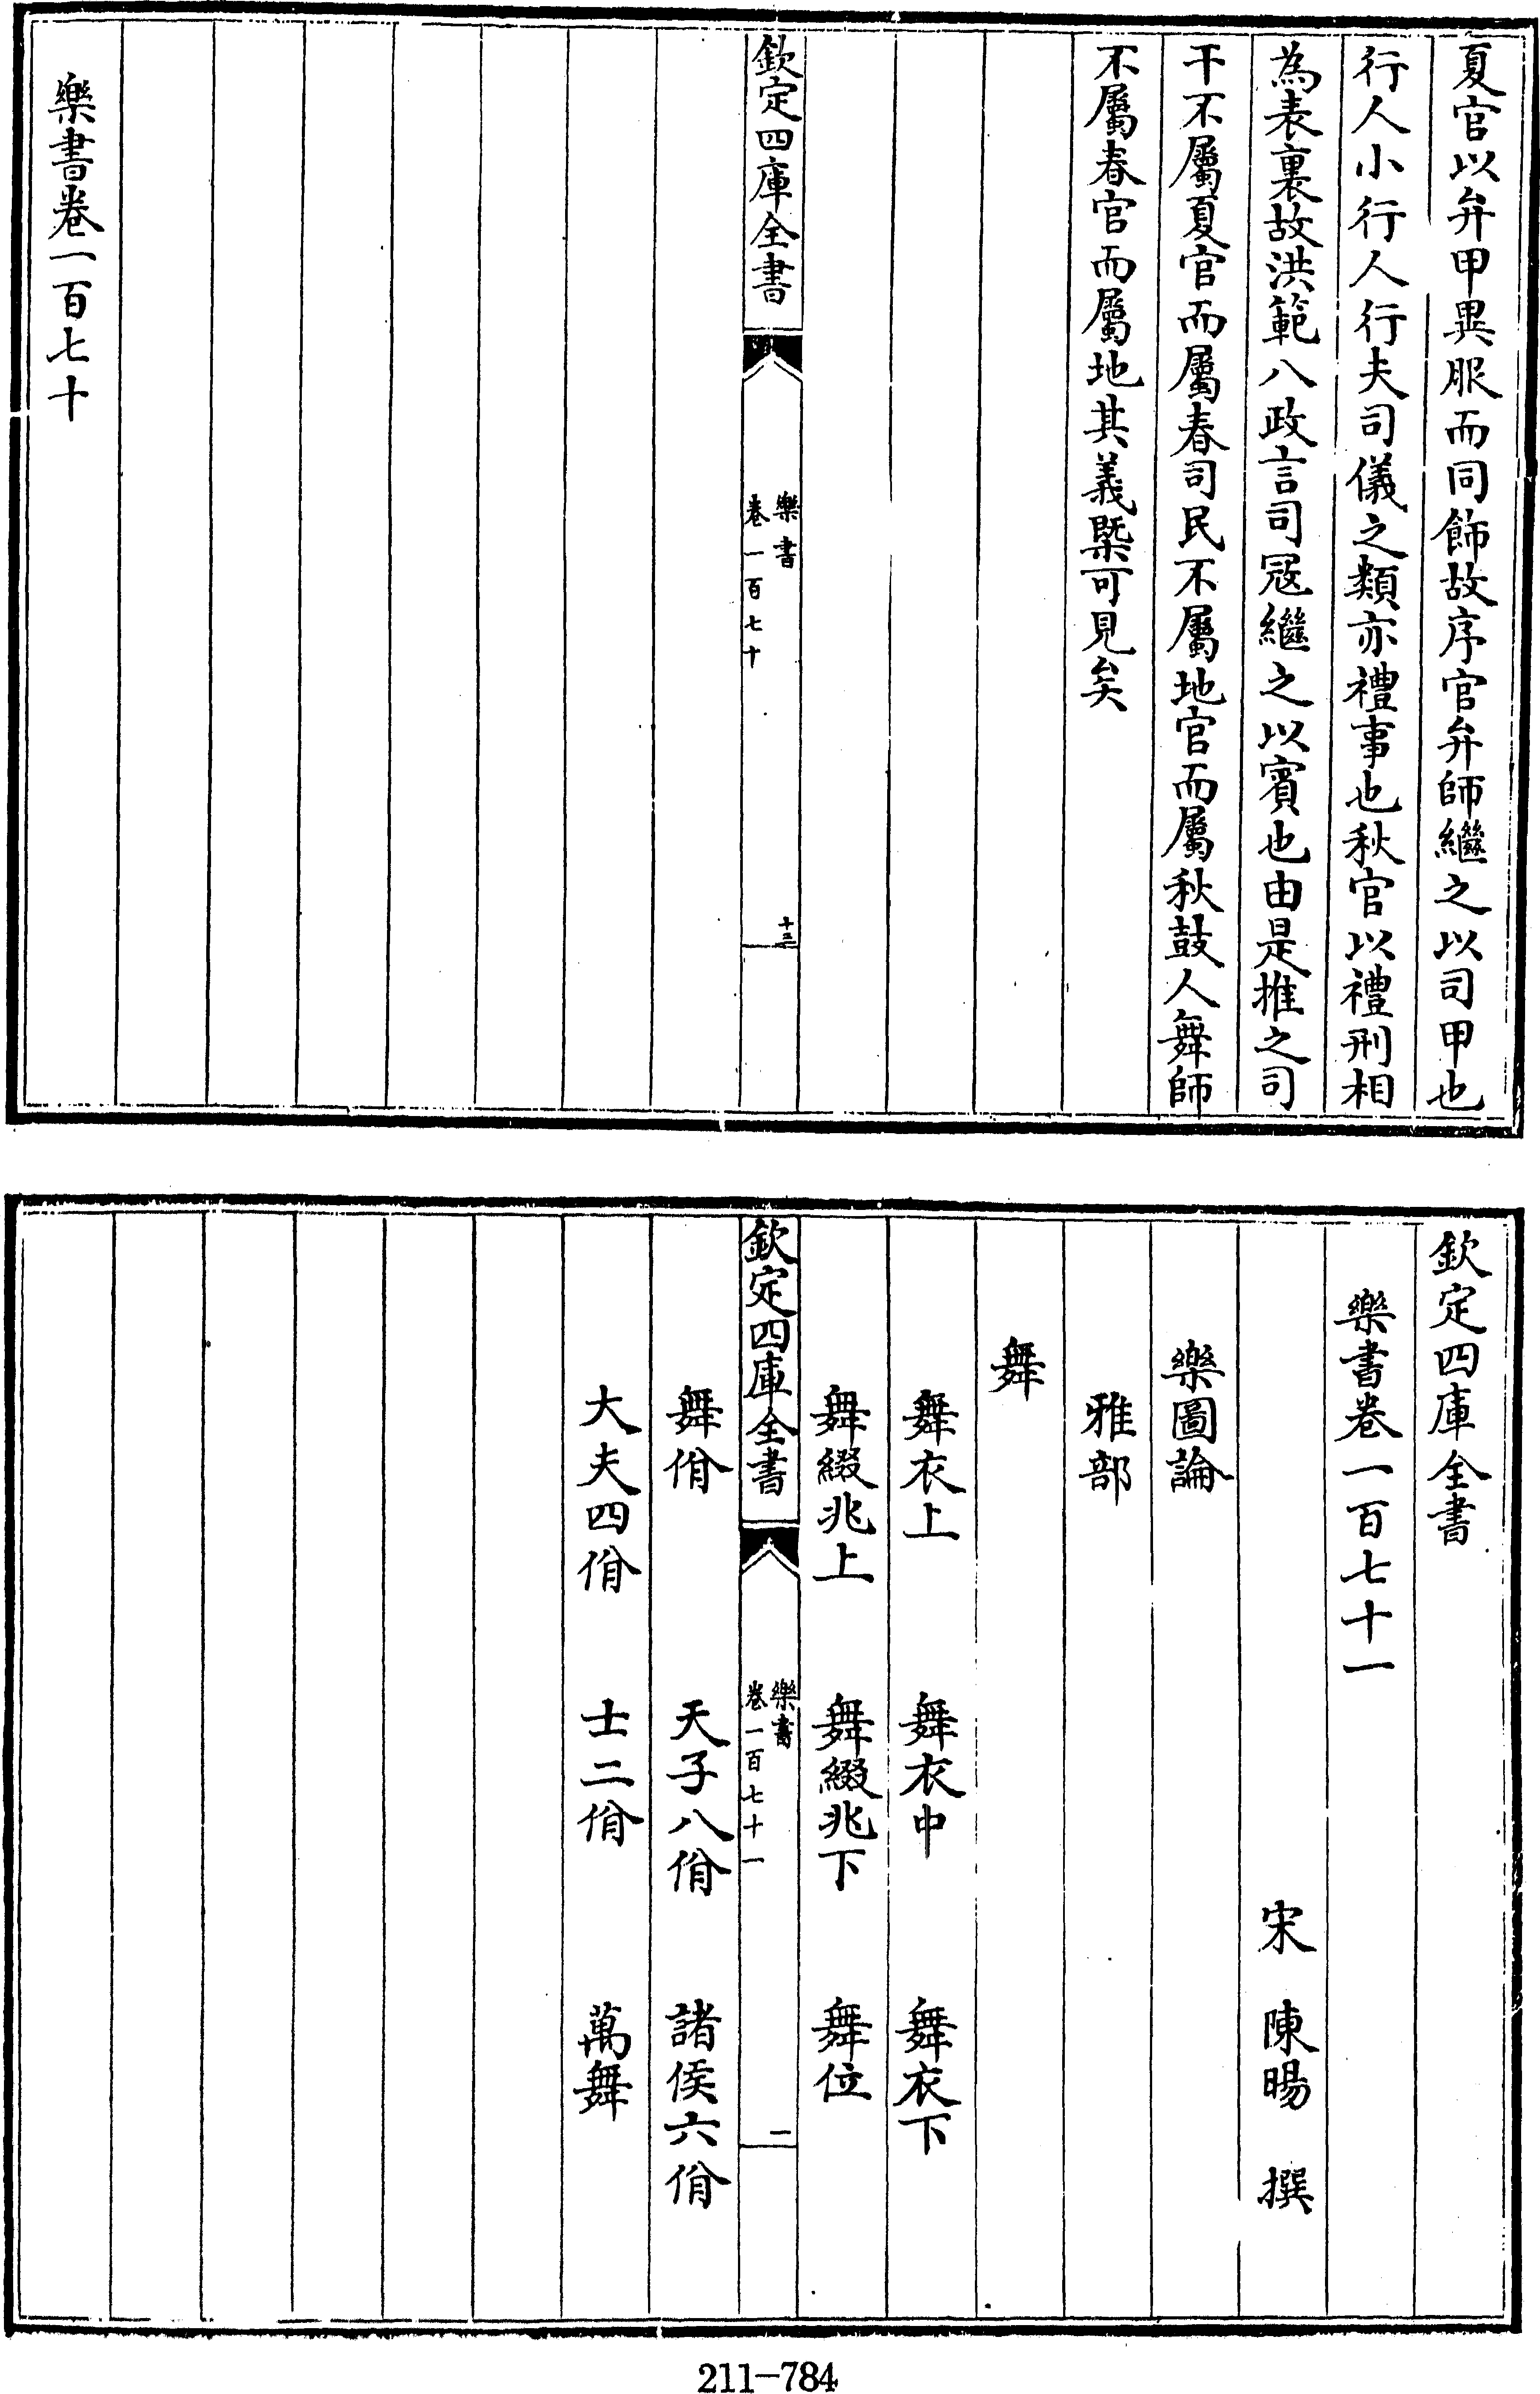 夏官以弁甲異服而同飾故序官弁師繼之以司甲也
行人小行人行夫司儀之類亦禮事也秋官以禮刑相
為表裏故洪範八政言司冦繼之以賓也由是推之司
干不屬夏官而屬春司民不屬地官而屬秋鼓人舞師
不屬春官而屬地其義槩可見矣
欽定四庫全書
樂書
卷一百七十
十三
樂書卷一百七十
欽定四庫全書
樂書卷一百七十一
宋 陳暘 撰
樂圖論
雅部
舞
舞衣上 舞衣中 舞衣下
舞綴兆上 舞綴兆下 舞位
欽定四庫全書
樂書
卷一百七十一
一
舞佾 天子八佾 諸侯六佾
大夫四佾 士二佾 萬舞
211-784